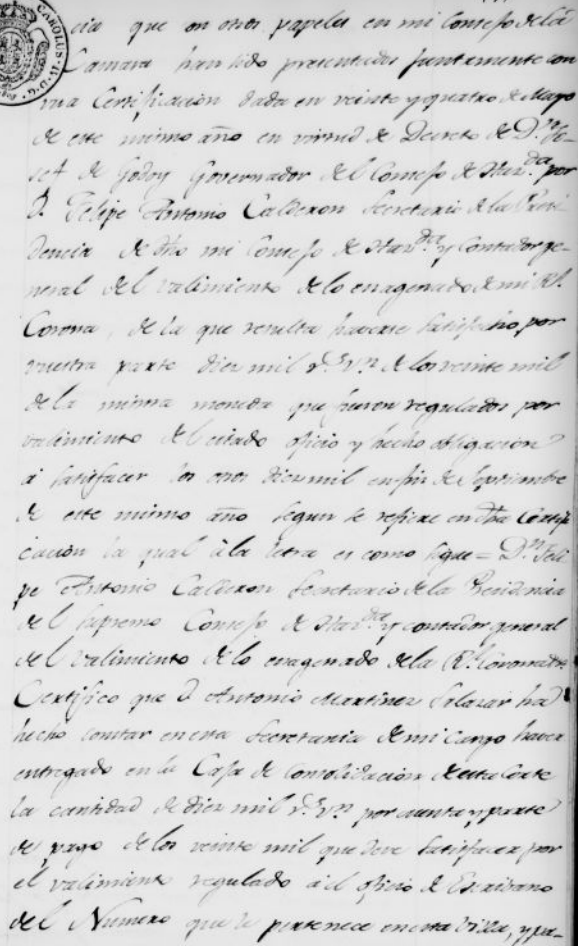 cia que con otros papeles en mi Consejo de la
Camara han sido presentados juntamente con
una Certificacion dada en veinte y quatro de Mayo
de este mismo año en virtud de Decreto de D.n Jo-
sef de Godoy Governador del Consejo de Haz.da por
D. Felipe Antonio Calderon Secretario de la Presi
dencia de dho mi Consejo de Haz.da y Contador ge-
neral del valimiento de lo enagenado de mi Rl.
Corona, de la que resulta haverse satisfecho por
vuestra parte diez mil r.s v.n de los veinte mil
de la misma moneda que fueron regulados por
valimiento del citado oficio y hecho obligacion
á satisfacer los otros diez mil en fin de Septiembre
de este mismo año segun se refiere en dha Certifi
cacion la qual á la letra es como sigue = D.n Feli
pe Antonio Calderon Secretario de la Presidencia
del Supremo Consejo de Haz.da y contador general
del valimiento de lo enagenado de la Rl. Corona
Certifico que D Antonio Martinez Salazar ha
hecho constar en esta Secretaria de mi cargo haver
entregado en la Caja de Consolidacion de esta Corte
la cantidad de diez mil r.s v.n por cuenta y parte
de pago de los veinte mil que deve satisfacer por
el valimiento regulado al oficio de Escribano
del Numero que le pertenece en esta Villa, y pa-
CAROLUS